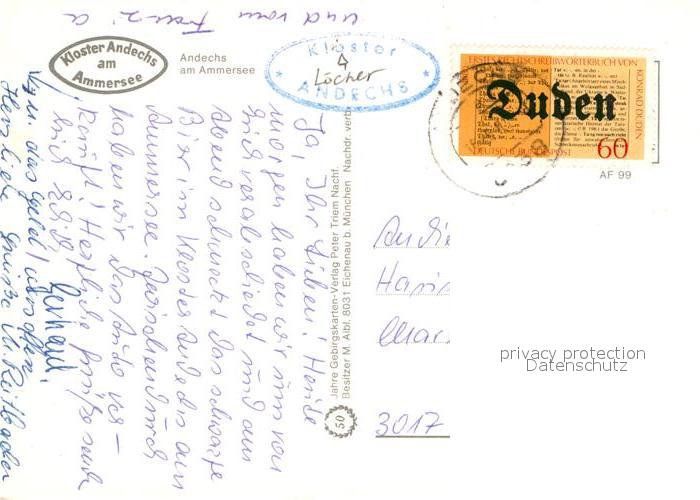 und vom Franzi a
Kloster Andechs
am
Ammersee
Andechs
am Ammersee
Kloster
4
Löcher
ANDECHS
ERSTES RECHTSCHREIBWÖRTERBUCH VON
KONRAD DUDEN
Duden
DEUTSCHE BUNDESPOST
60
AF 99
Ja Ihr Lieben! Heute
morgen haben wir uns von
verabschiedet und am
Abend schmeckt das schwarze
Bier im Kloster Andechs am
Ammersee. Zwischendurch
haben wir das Auto ver-
kauft! Herzliche Grüße euch
Gerhard.
das Geld
Herzliche Grüße
50 Jahre Gebirgskarten-Verlag Peter Triem Nachf.
Besitzer M. Aibl, 8031 Eichenau b. München Nachdr. verb
An die
3017
privacy protection
Datenschutz